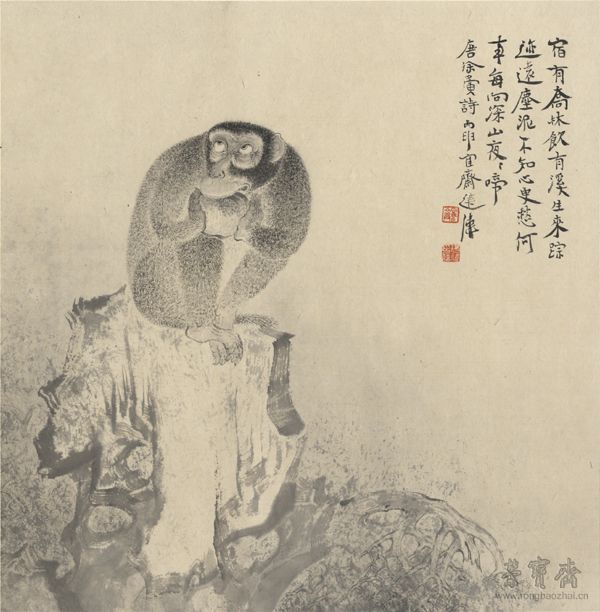 宿有喬林飲有溪生來踪
迹遠塵泥不知心更愁何
事每向深山夜〻啼
唐徐夤詩丙申宜齋
榮寶齋
www.rongbaozhai.cn